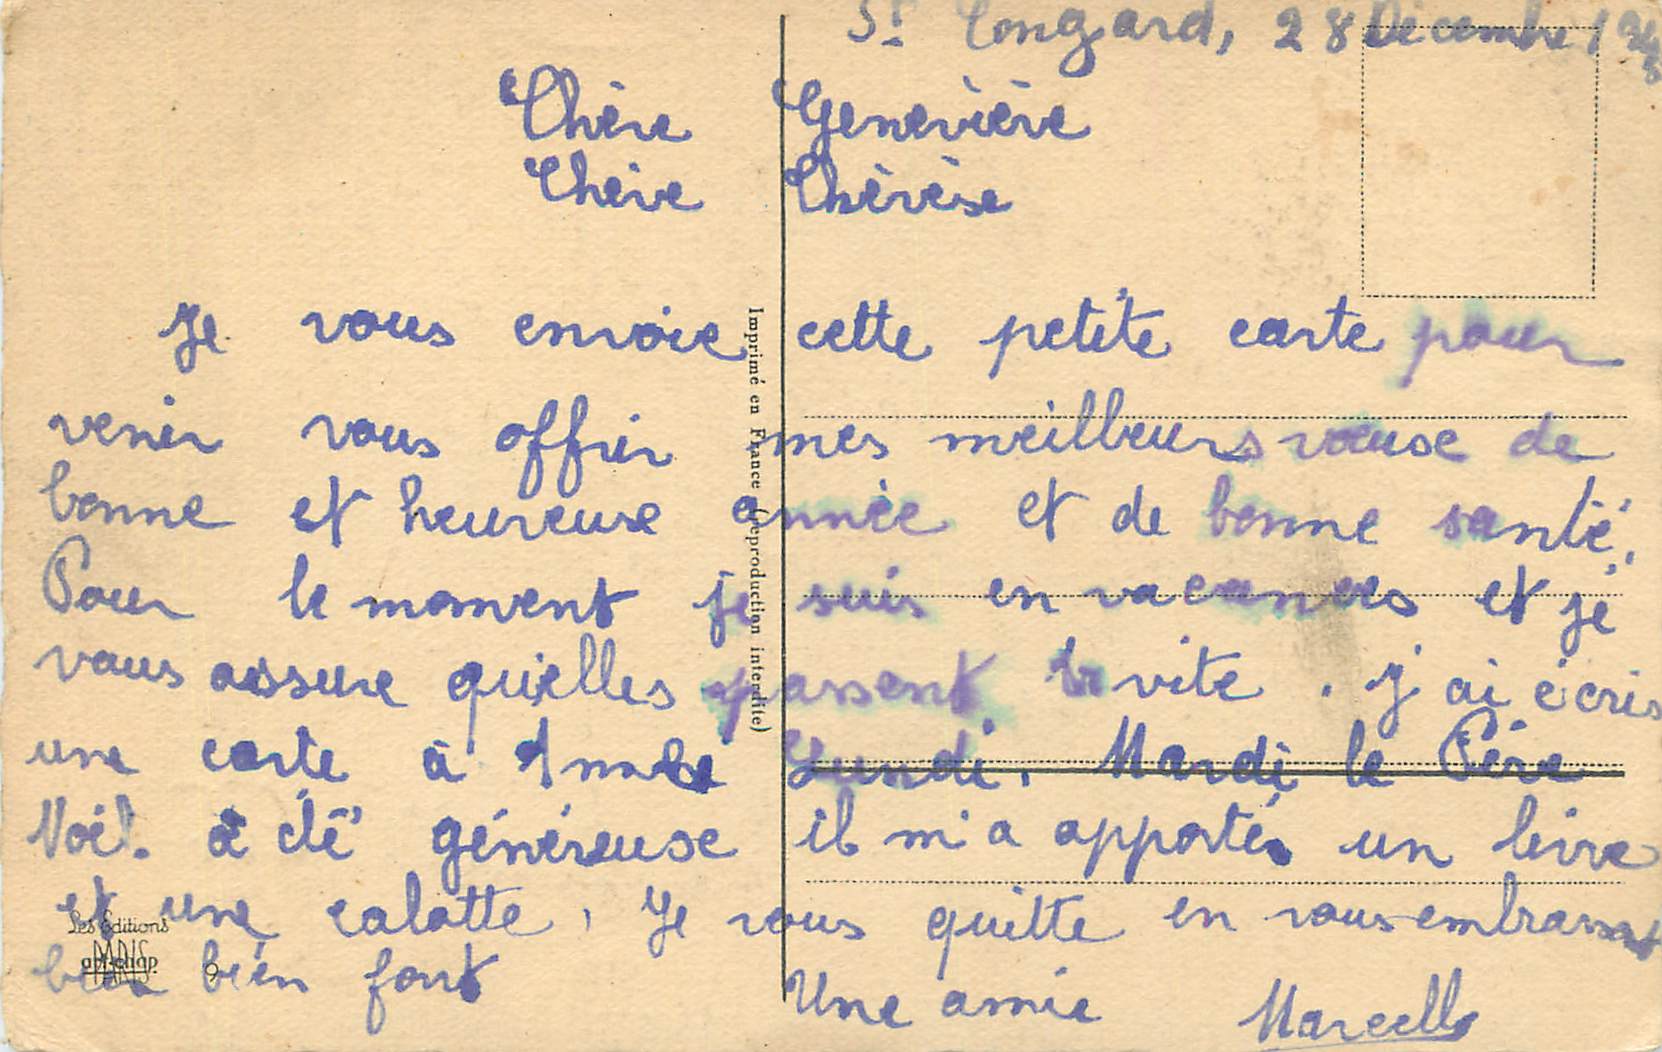 St Congard, 28 Décembre
Chère Geneviève
Chère Thérèse
Je vous envoie cette petite carte pour
venir vous offrir mes meilleurs voeuse de
bonne et heureuse année et de bonne santé.
Pour le moment je suis en vacances et je
vous assure qu'elles passent vite. j'ai écris
une carte à Lundi. Mardi le Père
Noël. a été généreuse il m'a apportés un livre
et une calotte, Je vous quitte en vous embrassant
bien bien fort
Une amie Marcelle
Imprimé en France (reproduction interdite)
Les Editions
PARIS
9